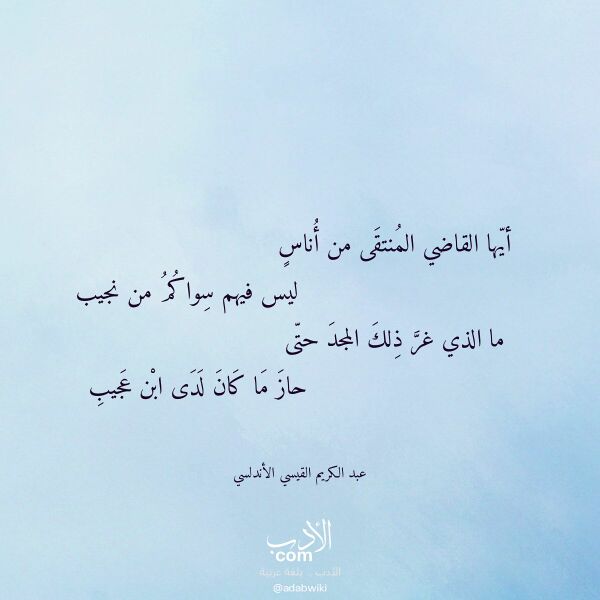 أيّها القاضي المُنتقَى من أُناسٍ
ليس فيهم سِواكُمُ من نجيب
ما الذي غرَّ ذِلكَ المجدَ حتّى
حازَ مَا كَانَ لَدَى ابْن عَجيبِ
عبد الكريم القيسي الأندلسي
الأدب
com
الأدب .. بلغة عربية
@adabwiki